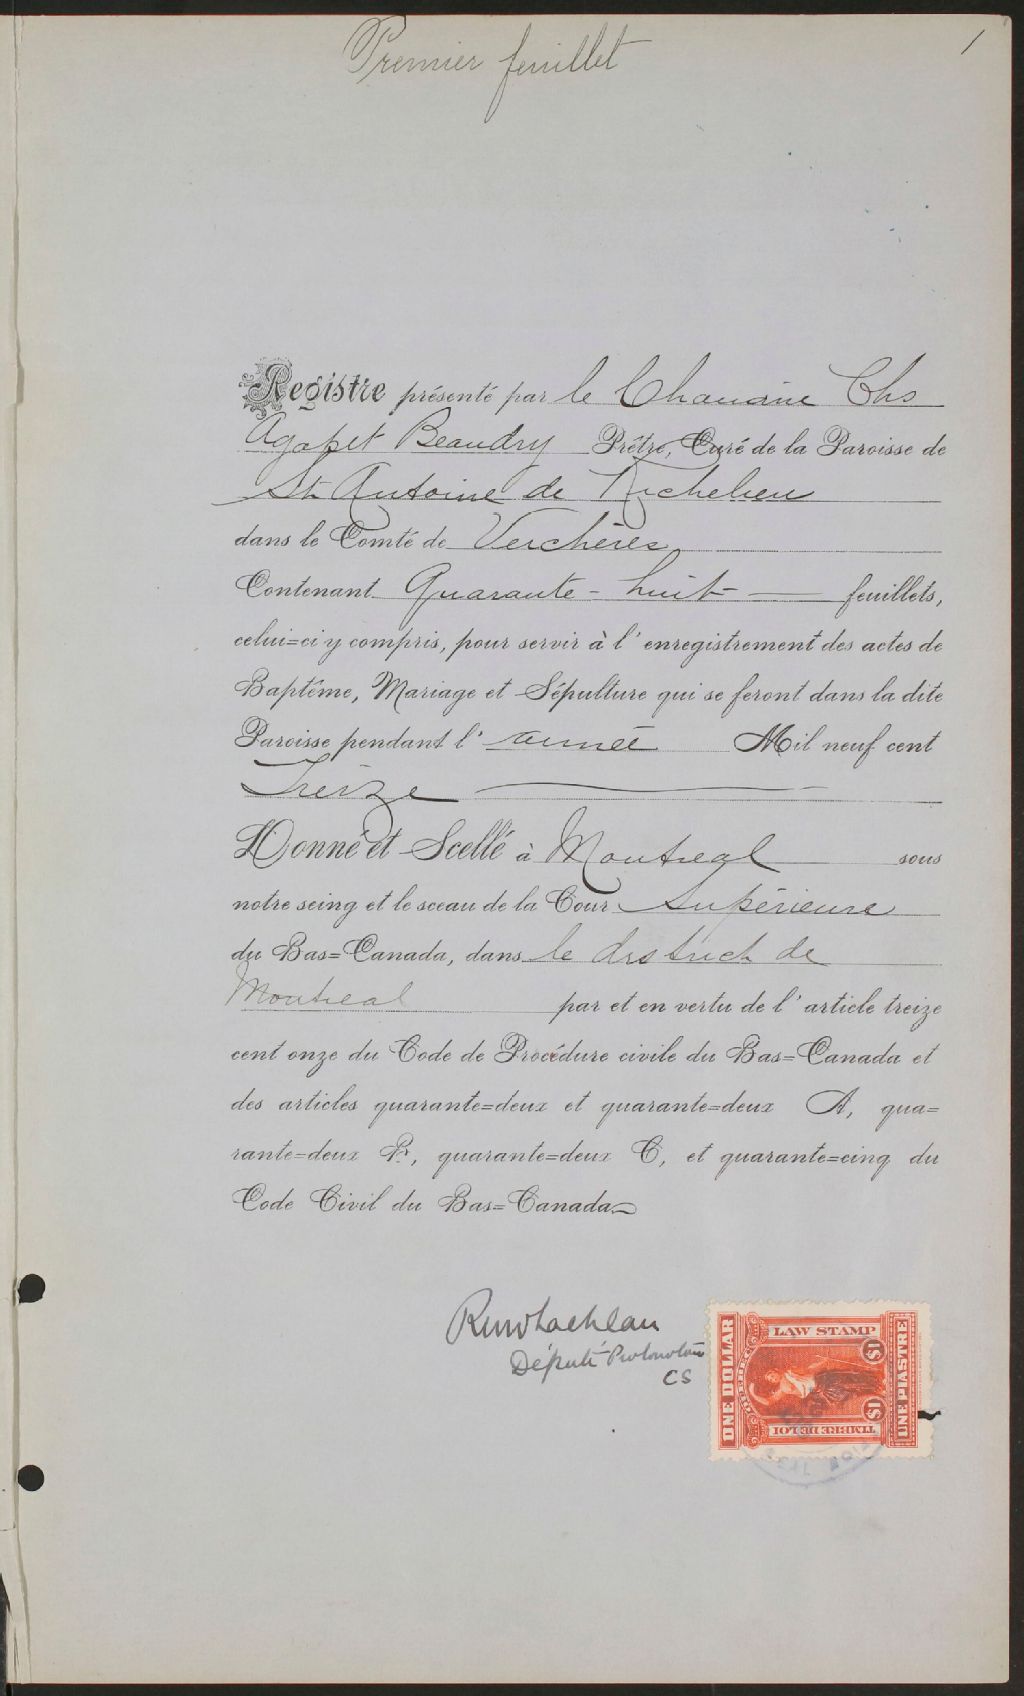 Premier feuillet
1
Registre présenté par le Chanoine Chs
Agapit Beaudry Prêtre, Curé de la Paroisse de
St Antoine de Richelieu
dans le Comté de Verchères
Contenant Quarante-huit feuillets,
celui=ci y compris, pour servir à l'enregistrement des actes de
Baptême, Mariage et Sépulture qui se feront dans la dite
Paroisse pendant l'année Mil neuf cent
Treize
Donné et Scellé à Montreal sous
notre seing et le sceau de la Cour Supérieure
du Bas=Canada, dans le district de
Montreal par et en vertu de l'article treize
cent onze du Code de Procédure civile du Bas=Canada et
des articles quarante=deux et quarante=deux A, qua=
rante=deux B, quarante=deux C, et quarante=cinq du
Code Civil du Bas=Canada
Député Protonotaire
CS
LAW STAMP
ONE DOLLAR
QUEBEC
$1
$1
UNE PIASTRE
TIMBRE DE LOI